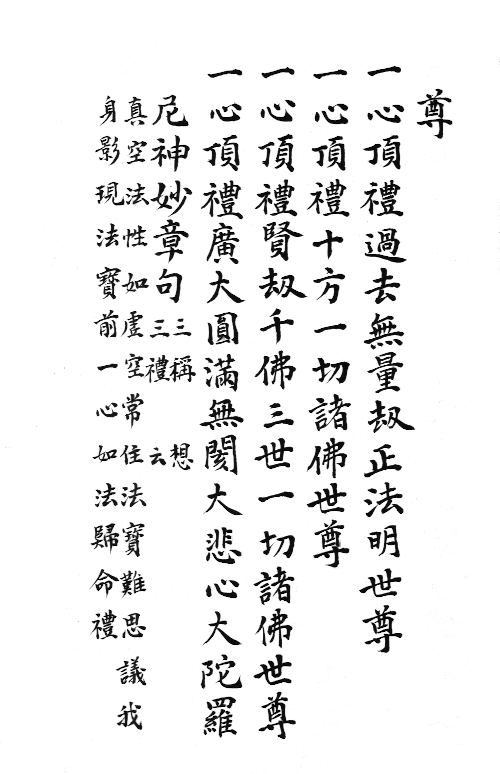 尊
一心頂禮過去無量劫正法明世尊
一心頂禮十方一切諸佛世尊
一心頂禮賢劫千佛三世一切諸佛世尊
一心頂禮廣大圓滿無閡大悲心大陀羅
尼神妙章句三稱三禮想云
真空法性如虛空常住法寶難思議我
身影現法寶前一心如法歸命禮